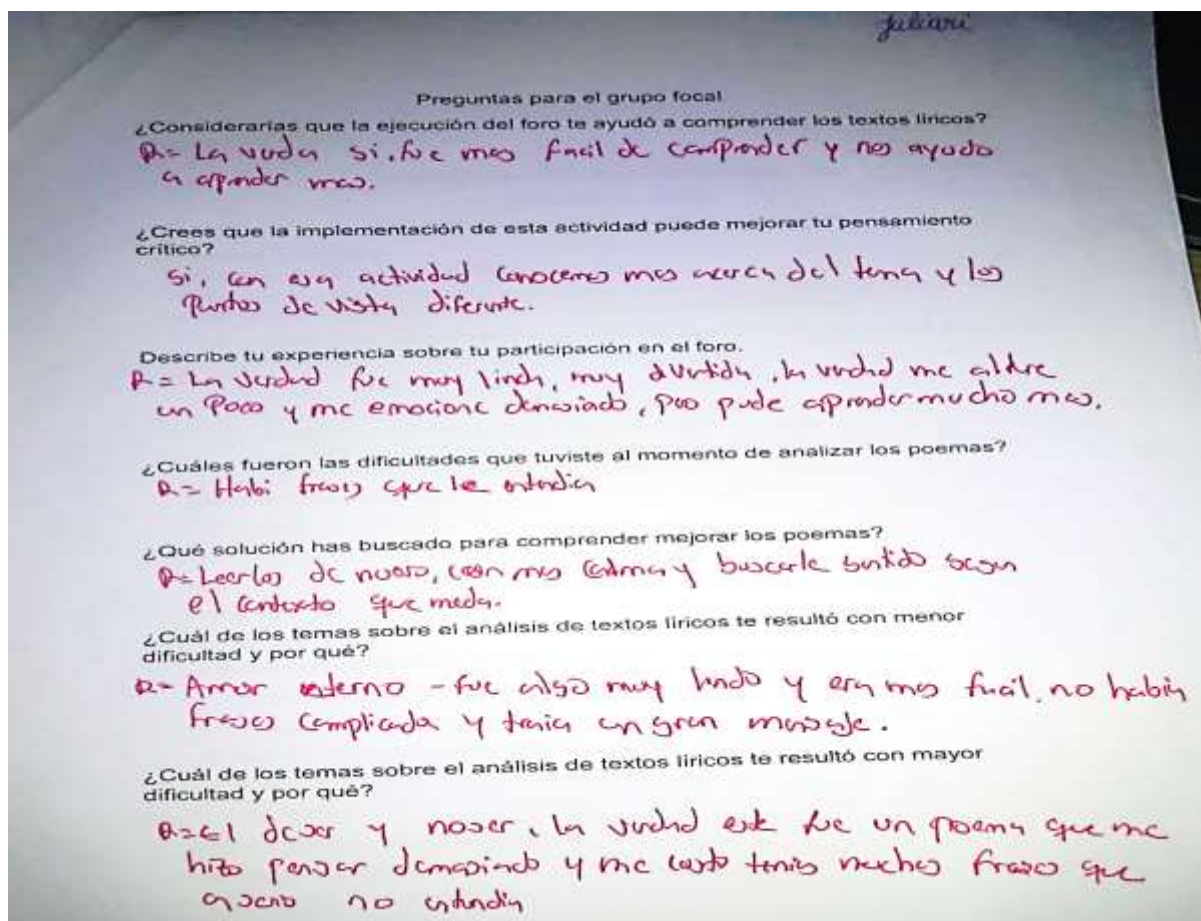 Juliari
Preguntas para el grupo focal
¿Considerarías que la ejecución del foro te ayudó a comprender los textos líricos?
R= La si. fue mas facil de comprender y nos ayudo
a aprender mas.
¿Crees que la implementación de esta actividad puede mejorar tu pensamiento
crítico?
si, con esa actividad conocemos mas acerca del tema y los
Puntos de vista diferente.
Describe tu experiencia sobre tu participación en el foro.
R= La verdad fue muy linda, muy divertida, la verdad me
un Poco y me emocione demasiado, pero pude aprender mucho mas.
¿Cuáles fueron las dificultades que tuviste al momento de analizar los poemas?
R= Habi frases que entendia
¿Qué solución has buscado para comprender mejorar los poemas?
R= Leerlos de nuevo, con mas calma y buscarle sentido segun
el contexto que meda.
¿Cuál de los temas sobre el análisis de textos líricos te resultó con menor
dificultad y por qué?
R= Amor - fue algo muy lindo y era mas facil. no habia
frases complicada y tenia un gran mensaje.
¿Cuál de los temas sobre el análisis de textos líricos te resultó con mayor
dificultad y por qué?
R= El de ser y noser, la verdad este fue un poema que me
hizo pensar demasiado y me costo tenia muchas frases que
no entendia